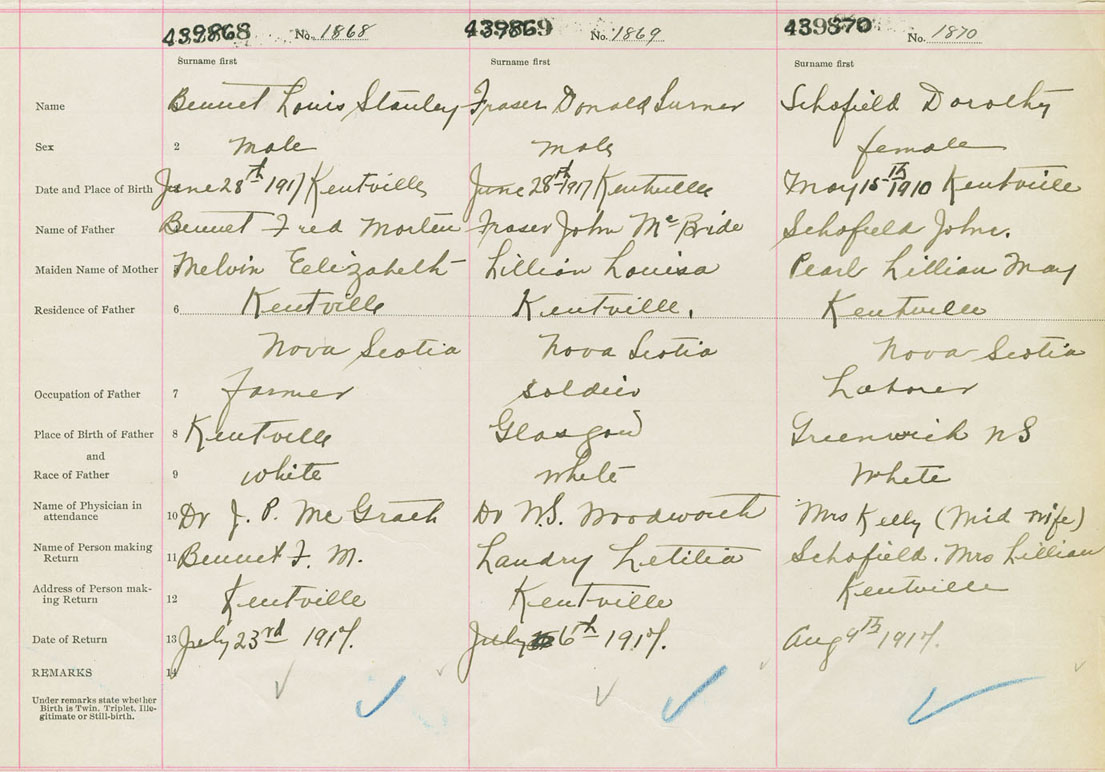 439868 No. 1868 439869 No. 1869 439870 No. 1870
Surname first Surname first Surname first
Name Bennet Louis Stanley Fraser Donald Turner Schofield Dorothy
Sex 2 male male female
Date and Place of Birth June 28th 1917 Kentville June 28th 1917 Kentville May 15th 1910 Kentville
Name of Father Bennet Fred Morten Fraser John McBride Schofield John.
Maiden Name of Mother Melvin Eelizabeth Lillian Louisa Pearl Lillian May
Residence of Father 6 Kentville Kentville. Kentville
Nova Scotia Nova Scotia Nova Scotia
Occupation of Father 7 farmer soldier Laborer
Place of Birth of Father 8 Kentville Glasgow Greenwich NS
and
Race of Father 9 white white White
Name of Physician in
attendance 10 Dr J. P. McGrath Dr W.S. Woodworth Mrs Kelly (Mid wife)
Name of Person making
Return 11 Bennet F. M. Landry Letitia Schofield. Mrs Lillian
Address of Person mak-
ing Return 12 Kentville Kentville Kentville
Date of Return 13 July 23rd 1917. July 6th 1917. Aug 9th 1917.
REMARKS 14
Under remarks state whether
Birth is Twin, Triplet, Ille-
gitimate or Still-birth.